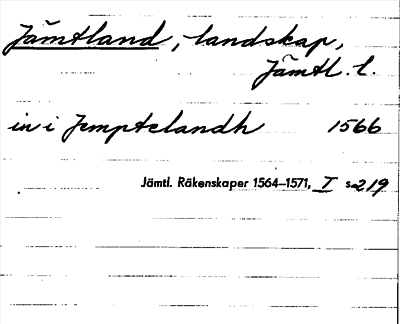 Jämtland, landskap,
Jämtl. l.
in i Jemptelandh 1566
Jämtl. Räkenskaper 1564–1571, I s. 219